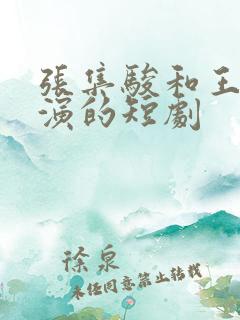 張集駿和王
演的短劇
徐泉
未经同意禁止转载